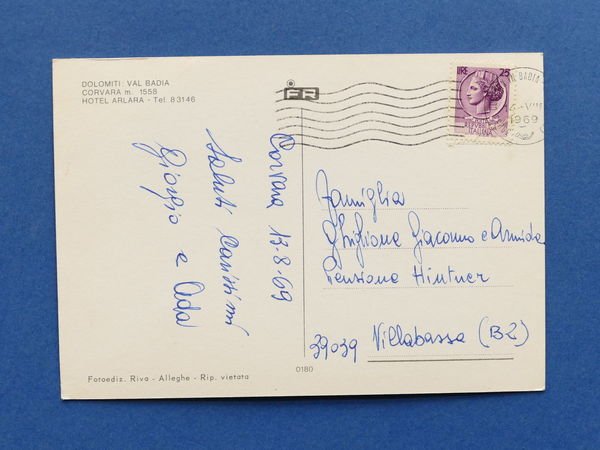 DOLOMITI: VAL BADIA
CORVARA m. 1558
HOTEL ARLARA - Tel. 83146
FR
LIRE 25
ITALIANA
1969
Corvara 13.8.69
Saluti Carissimi
Giorgio e Ada
Famiglia
Ghiglione Giacomo e Armida
Pensione Hintner
39039 Villabassa (BZ)
0180
Fotoediz. Riva - Alleghe - Rip. vietata